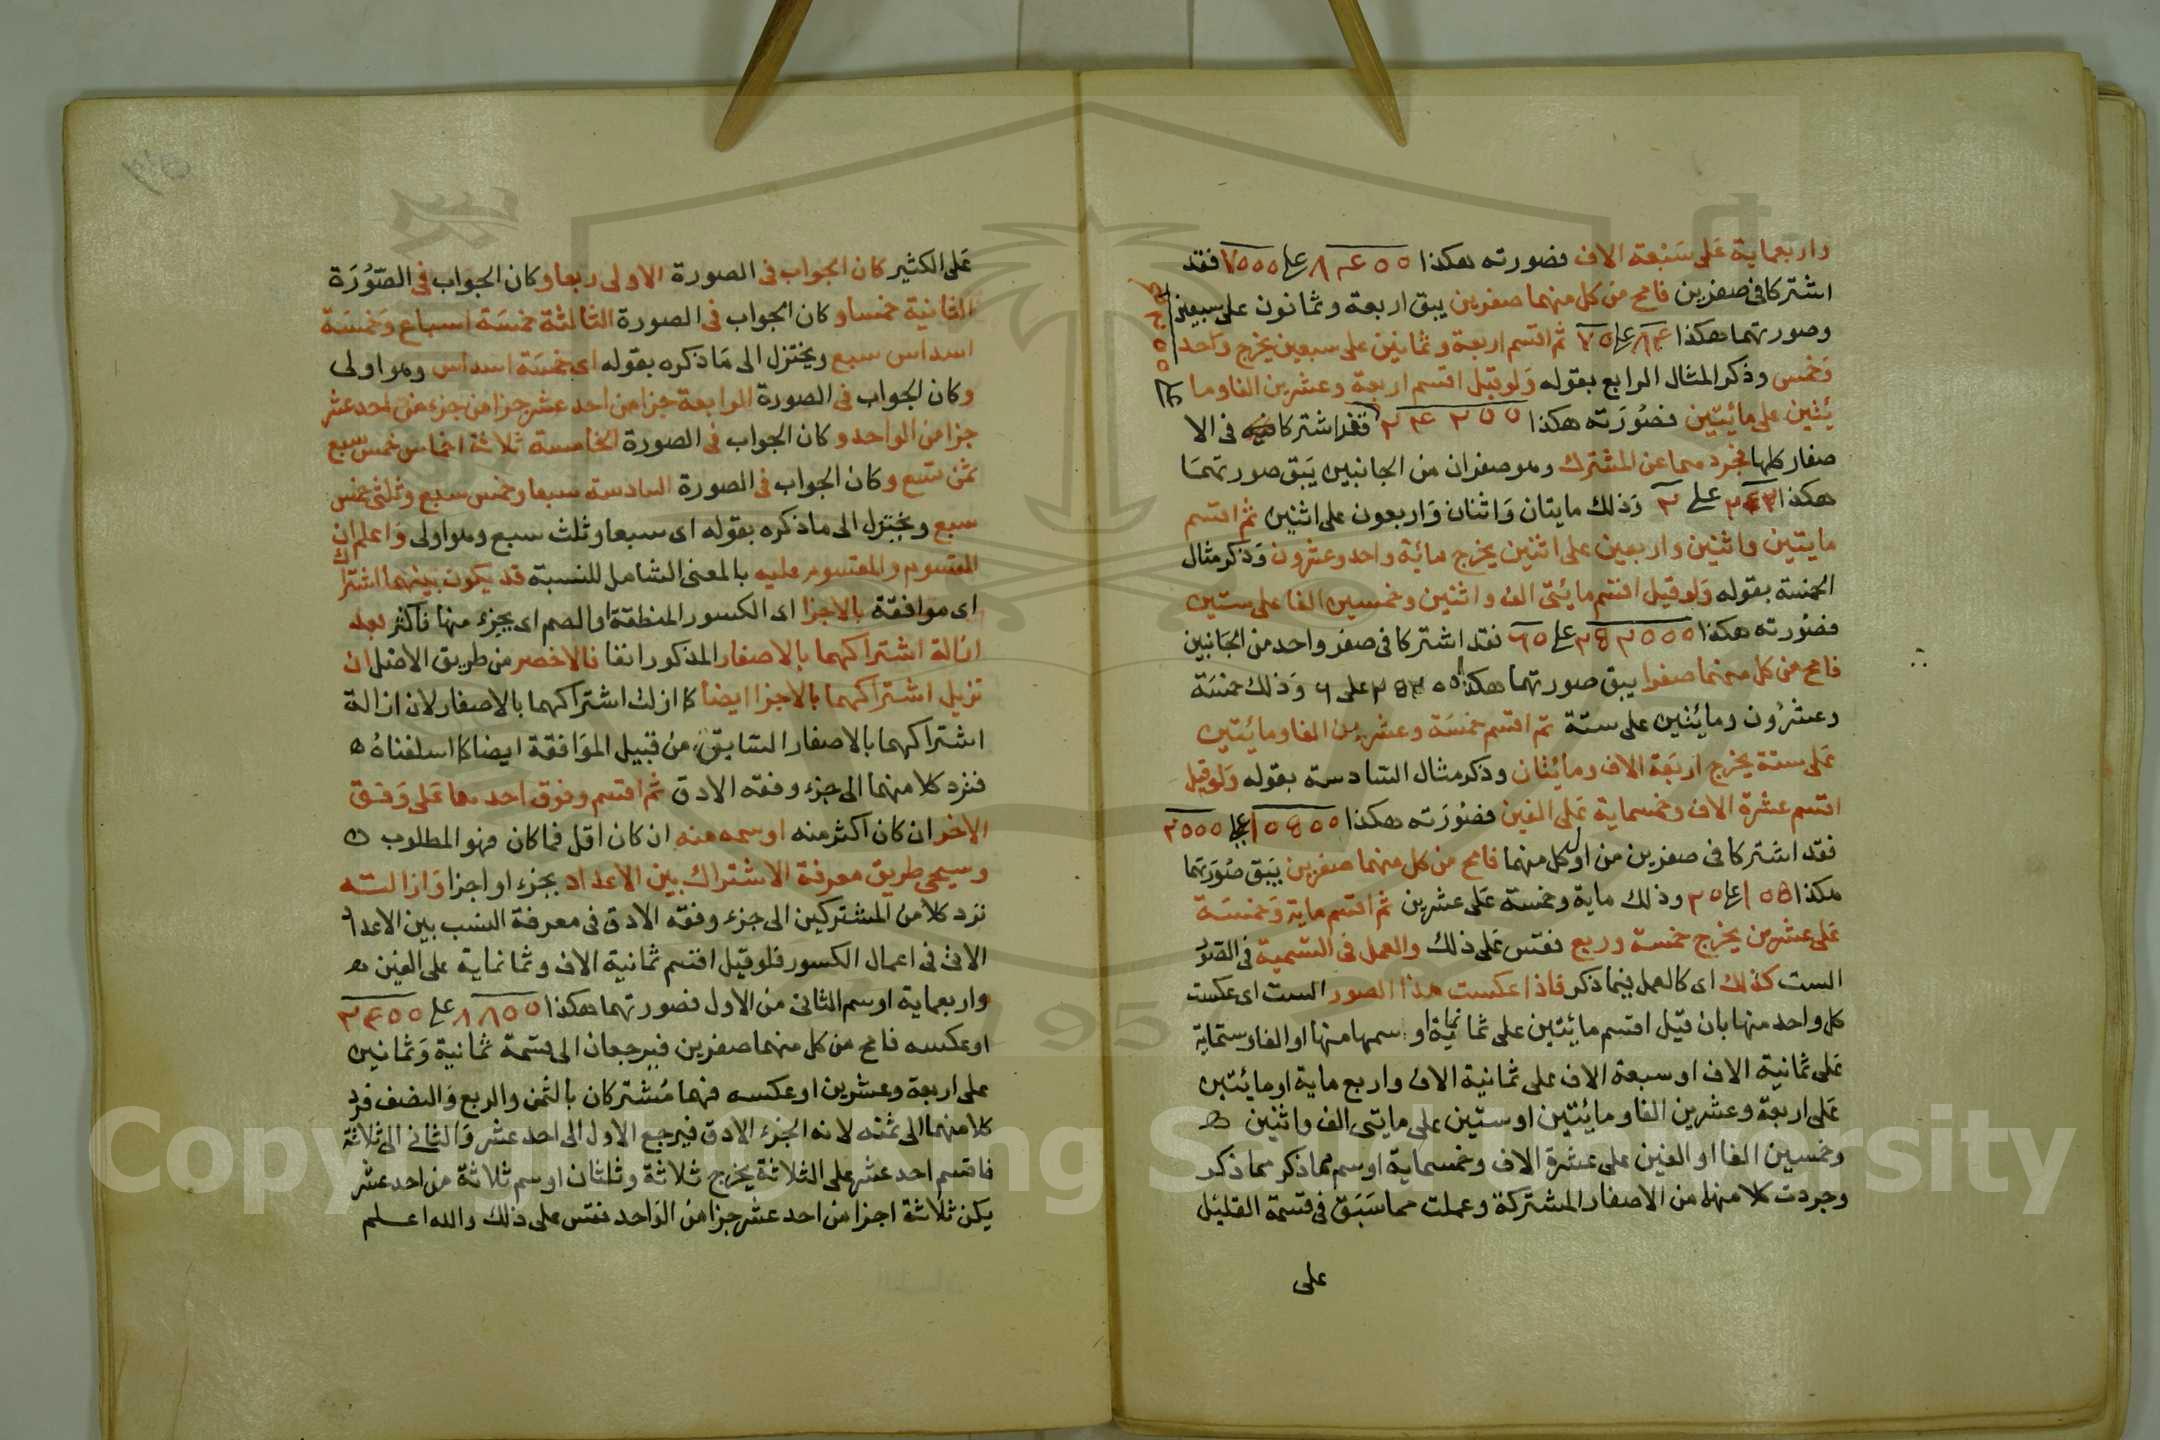 واربعماية على سبعة الاف فصورته هكذا ٨٤٠٠ على ٧٠٠٠ فقد
اشتركا في صفرين فامح من كل منهما صفرين يبق اربعة وثمانون على سبعين
وصورتهما هكذا ٨٤ على ٧٠ ثم اقسم اربعة وثمانين على سبعين يخرج واحد
وخمس وذكر المثال الرابع بقوله ولو قيل اقسم اربعة وعشرين الفا وما
يتين على مائيتين فصورته هكذا ٢٤٢٠٠ فقد اشتركا في الا
صفار كلها فجردهما عن المشترك وهو صفران من الجانبين يبق صورتهما
هكذا ٢٤٢ على ٢ وذلك مايتان واثنان واربعون على اثنين ثم اقسم
مايتين واثنين واربعين على اثنين يخرج مائة واحد وعشرون وذكر مثال
الخمسة بقوله ولو قيل اقسم مايتي الف واثنين وخمسين الفا على ستين
فصورته هكذا ٢٥٢٠٠٠ على ٦٠ فقد اشتركا في صفر واحد من الجانبين
فامح من كل منهما صفرا يبق صورتهما هكذا ٢٥٢٠٠ على ٦ وذلك خمسة
وعشرون ومائتين على ستة ثم اقسم خمسة وعشرين الفا ومائيتين
على ستة يخرج اربعة الاف ومائتان وذكر مثال السادسة بقوله ولو قيل
اقسم عشرة الاف وخمسماية على الفين فصورته هكذا ١٠٥٠٠ على ٢٠٠٠
فقد اشتركا في صفرين من اول كل منهما فامح من كل منهما صفرين يبق صورتهما
هكذا ١٠٥ على ٢٠ وذلك ماية وخمسة على عشرين ثم اقسم ماية وخمسة
على عشرين يخرج خمسة وربع فقس على ذلك والعمل في التسمية في الصور
الست كذلك اى كالعمل فيما ذكر فاذا عكست هذا الصور الست اى عكست
كل واحد منها بان قيل اقسم مائيتين على ثمانماية او سمها منها او الفا وستماية
على ثمانية الاف او سبعة الاف على ثمانية الاف واربع ماية او مائيتين
على اربعة وعشرين الفا ومائيتين او ستين على مايتى الف واثنين
وخمسين الفا او الفين على عشرة الاف وخمسماية او سم مما ذكر مما ذكر
وجردت كلا منهما من الاصفار المشتركة وعملت مما سبق في قسمة القليل
على
على الكثير كان الجواب في الصورة الاولى ربعا وكان الجواب في الصورة
الثانية خمسا وكان الجواب في الصورة الثالثة خمسة اسباع وخمسة
اسداس سبع ويختزل الى ما ذكره بقوله اى خمسة اسداس وهو اولى
وكان الجواب في الصورة الرابعة جزا من احد عشر جزا من جزء من احد عشر
جزا من الواحد وكان الجواب في الصورة الخامسة ثلاثة اخماس خمس سبع
ثمن تسع وكان الجواب في الصورة السادسة سبعا وخمس سبع وثلثى خمس
سبع ويختزل الى ما ذكره بقوله اى سبعا وثلث سبع وهو اولى واعلم ان
المقسوم والمقسوم عليه بالمعنى الشامل للنسبة قد يكون بينهما اشتراك
اى موافقة بالاجزا اى الكسور المنطقة او الصم اى بجزء منها فاكثر بعد
ازالة اشتراكهما بالاصفار المذكور انفا فالاخصر من طريق الاصل ان
تزيل اشتراكهما بالاجزا ايضا كما ازلت اشتراكهما بالاصفار لان ازالة
اشتراكهما بالاصفار السابق من قبيل الموافقة ايضا كما اسلفناه
فنرد كلا منهما الى جزء وفقه الادق ثم اقسم وفق احدهما على وفق
الاخر ان كان اكثر منه او سمه منه ان كان اقل فما كان فهو المطلوب
وسيجي طريق معرفة الاشتراك بين الاعداد بجزء او اجزا وازالته
نرد كلا من المشتركين الى جزء وفقه الادق في معرفة النسب بين الاعدا
الاتى في اعمال الكسور فلو قيل اقسم ثمانية الاف وثمانماية على الفين
واربعماية او سم الثاني من الاول فصورتهما هكذا ٨٨٠٠ على ٢٤٠٠
او عكسه فامح من كل منهما صفرين فيرجعان الى قسمة ثمانية وثمانين
على اربعة وعشرين او عكسه فهما مشتركان بالثمن والربع والنصف فرد
كلا منهما الى ثمنه لانه الجزء الادق فيرجع الاول الى احد عشر والثاني الى ثلاثة
فاقسم احد عشر على الثلاثة يخرج ثلاثة وثلثان او سم ثلاثة من احد عشر
يكن ثلاثة اجزا من احد عشر جزا من الواحد فقس على ذلك والله اعلم
Copyright © King Saud University